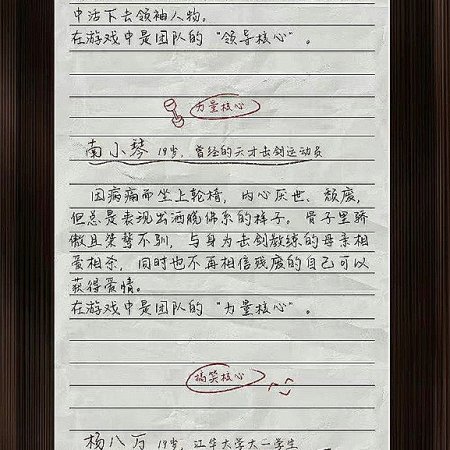 中活下去领袖人物。
在游戏中是团队的“领导核心”。
力量核心
南小琴 19岁，曾经的天才击剑运动员
因病痛而坐上轮椅，内心厌世、颓废，
但总是表现出洒脱佛系的样子。骨子里骄
傲且桀骜不驯，与身为击剑教练的母亲相
爱相杀，同时也不再相信残废的自己可以
获得爱情。
在游戏中是团队的“力量核心”。
搞笑核心
杨八万 19岁，江华大学大一学生